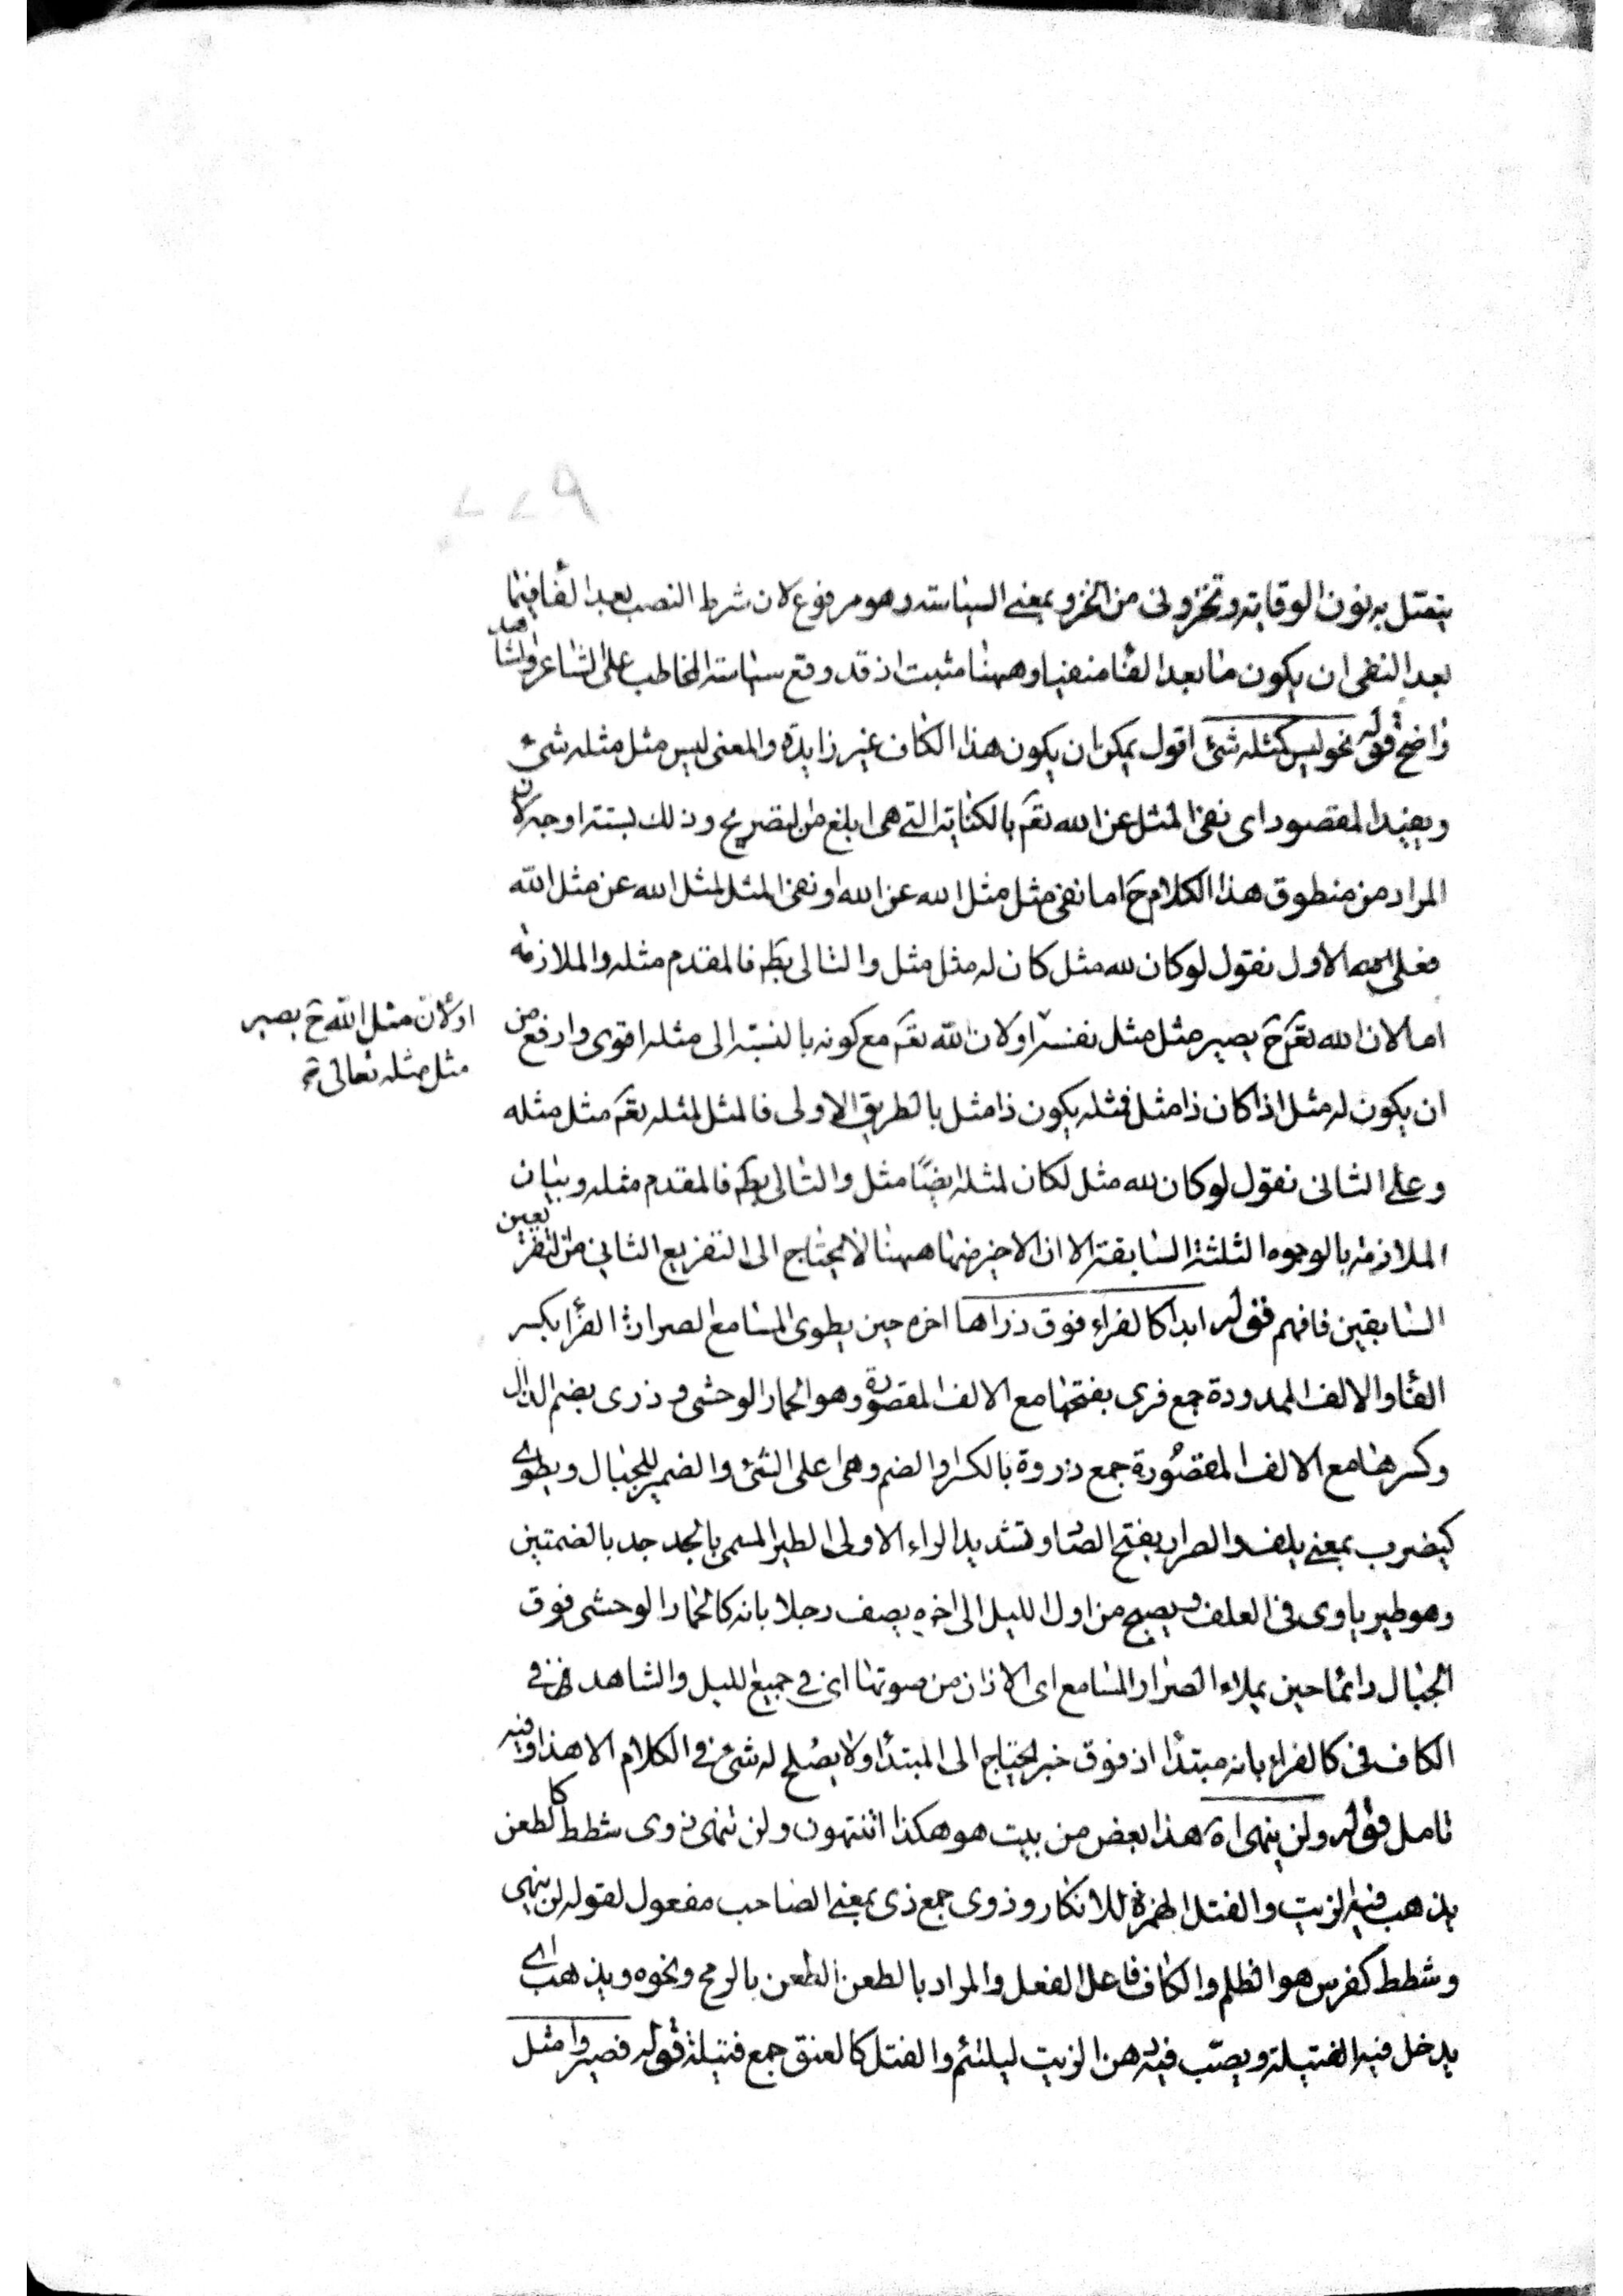 ۲۲۹
يتصل به نون الوقاية وتخزونى من الخزو بمعنى السياسة وهو مرفوع لان شرط النصب بعد الفا فيما
بعد النفى ان يكون ما بعد الفا منفيا وههنا مثبت اذ قد وقع سياسة المخاطب على الشاعر والشاهد
واضح قوله نحو ليس كمثله شئ اقول يمكن ان يكون هذا الكاف غير زايدة والمعنى ليس مثل مثله شئ
ويفيد المقصود اى نفى المثل عن الله تعم بالكناية التى هى ابلغ من التصريح وذلك بستة اوجه لان
المراد من منطوق هذا الكلام ح اما نفى مثل مثل الله عن الله او نفى المثل لمثل الله عن مثل الله
فعلى الاول نقول لو كان لله مثل كان له مثل مثل والتالى بط فالمقدم مثله والملازمة
اما لان الله تعم ح يصير مثل مثل نفسه او لان الله تعم مع كونه بالنسبة الى مثله اقوى وارفع من
او لان مثل الله ح يصير
مثل مثله تعالى
ان يكون له مثل اذا كان ذا مثل فمثله يكون ذا مثل بالطريق الاولى فالمثل لمثله تعم مثل مثله
وعلى الثانى نقول لو كان لله مثل لكان لمثله ايضًا مثل والتالى بط فالمقدم مثله وبيان
الملازمة بالوجوه الثلثة السابقة الا ان الاخير منها ههنا لا يحتاج الى التفريع الثانى من التفريعين
السابقين فافهم قوله ابدا كالفراء فوق ذراها اخره حين يطوى المسامع الصرار الفرأ بكسر
الفا والالف الممدودة جمع فرى بفتحها مع الالف المقصورة وهو الحمار الوحشى و ذرى بضم الذال
وكسرها مع الالف المقصُورة جمع ذروة بالكسر والضم وهى اعلى الشئ والضمير للجبال ويطوى
كيضرب بمعنى يلف والصرار بفتح الصا وتشديد الراء الاولى الطير المسمى بالجدجد بالضمتين
وهو طير ياوى فى العلف ويصيح من اول الليل الى اخره يصف رجلا بانه كالحمار الوحشى فوق
الجبال دائما حين يملاء الصرار المسامع اى الاذان من صوتها اى فى جميع الليل والشاهد فى
الكاف فى كالفراء بانه مبتدأ اذ فوق خبر يحتاج الى المبتدأ ولا يصُلح له شئ فى الكلام الا هذا وفيه
تامل قوله ولن ينهى اه هذا بعض من بيت هو هكذا اتنتهون ولن ينهى ذوى شطط كالطعن
يذهب فيه الزيت والفتل الهمزة للانكار وذوى جمع ذى بمعنى الصاحب مفعول لقوله لن ينهى
وشطط كفرس هو الظلم والكاف فاعل الفعل والمراد بالطعن الطعن بالرمح ونحوه ويذهب اى
يدخل فيه الفتيلة ويصبّ فيه دهن الزيت ليلتئم والفتل كالعنق جمع فتيلة قوله فصيروا مثل